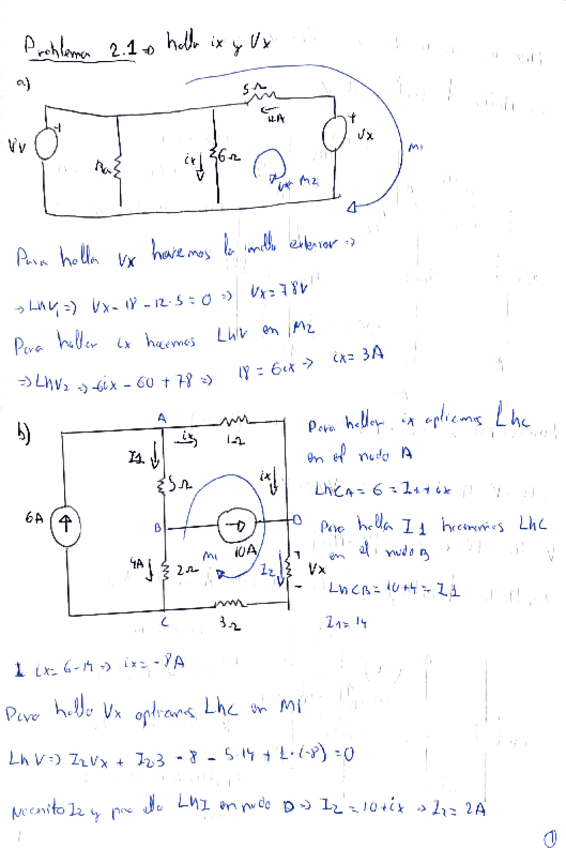 Problema 2.1 => halla ix y Vx
a)
5Ω
12A
+
Vx
M1
ix
6Ω
M2
Para halla Vx hacemos la malla exterior =>
-> LKV1 => Vx - 18 - 12·5 = 0 => Vx = 78V
Para hallar ix hacemos LKV en M2
=> LKV2 => -6ix - 60 + 78 => 18 = 6ix -> ix = 3A
b)
A
ix
1Ω
I1
5Ω
ix
6A
B
10A
D
4A
2Ω
M1
I2
+
Vx
-
C
3Ω
Para hallar ix aplicamos Lkc
en el nodo A
LKCA = 6 = I1 + ix
Para halla I1 hacemos LKC
en el nodo B
LKCB = 10+4 = I1
I1 = 14
ix = 6-14 => ix = -8A
Para halla Vx aplicamos Lkc en M1
LKV => I2Vx + I2·3 - 8 - 5·14 + 1·(-8) = 0
Necesito I2 y para ello LKI en nodo D => I2 = 10 + ix => I2 = 2A
1